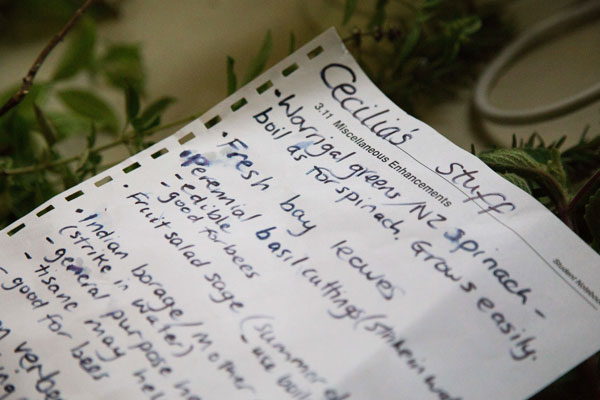 Cecilia's stuff
3.11 Miscellaneous Enhancements
Student Notebook
• Warrigal greens/NZ spinach -
boil as for spinach. Grows easily.
• Fresh bay leaves
• Perennial basil cuttings (strike in
- edible
- good for bees
• Fruit salad sage (summer
- use
• Indian borage/Mother
(strike in water)
- general purpose
- tisane may
- good for bees